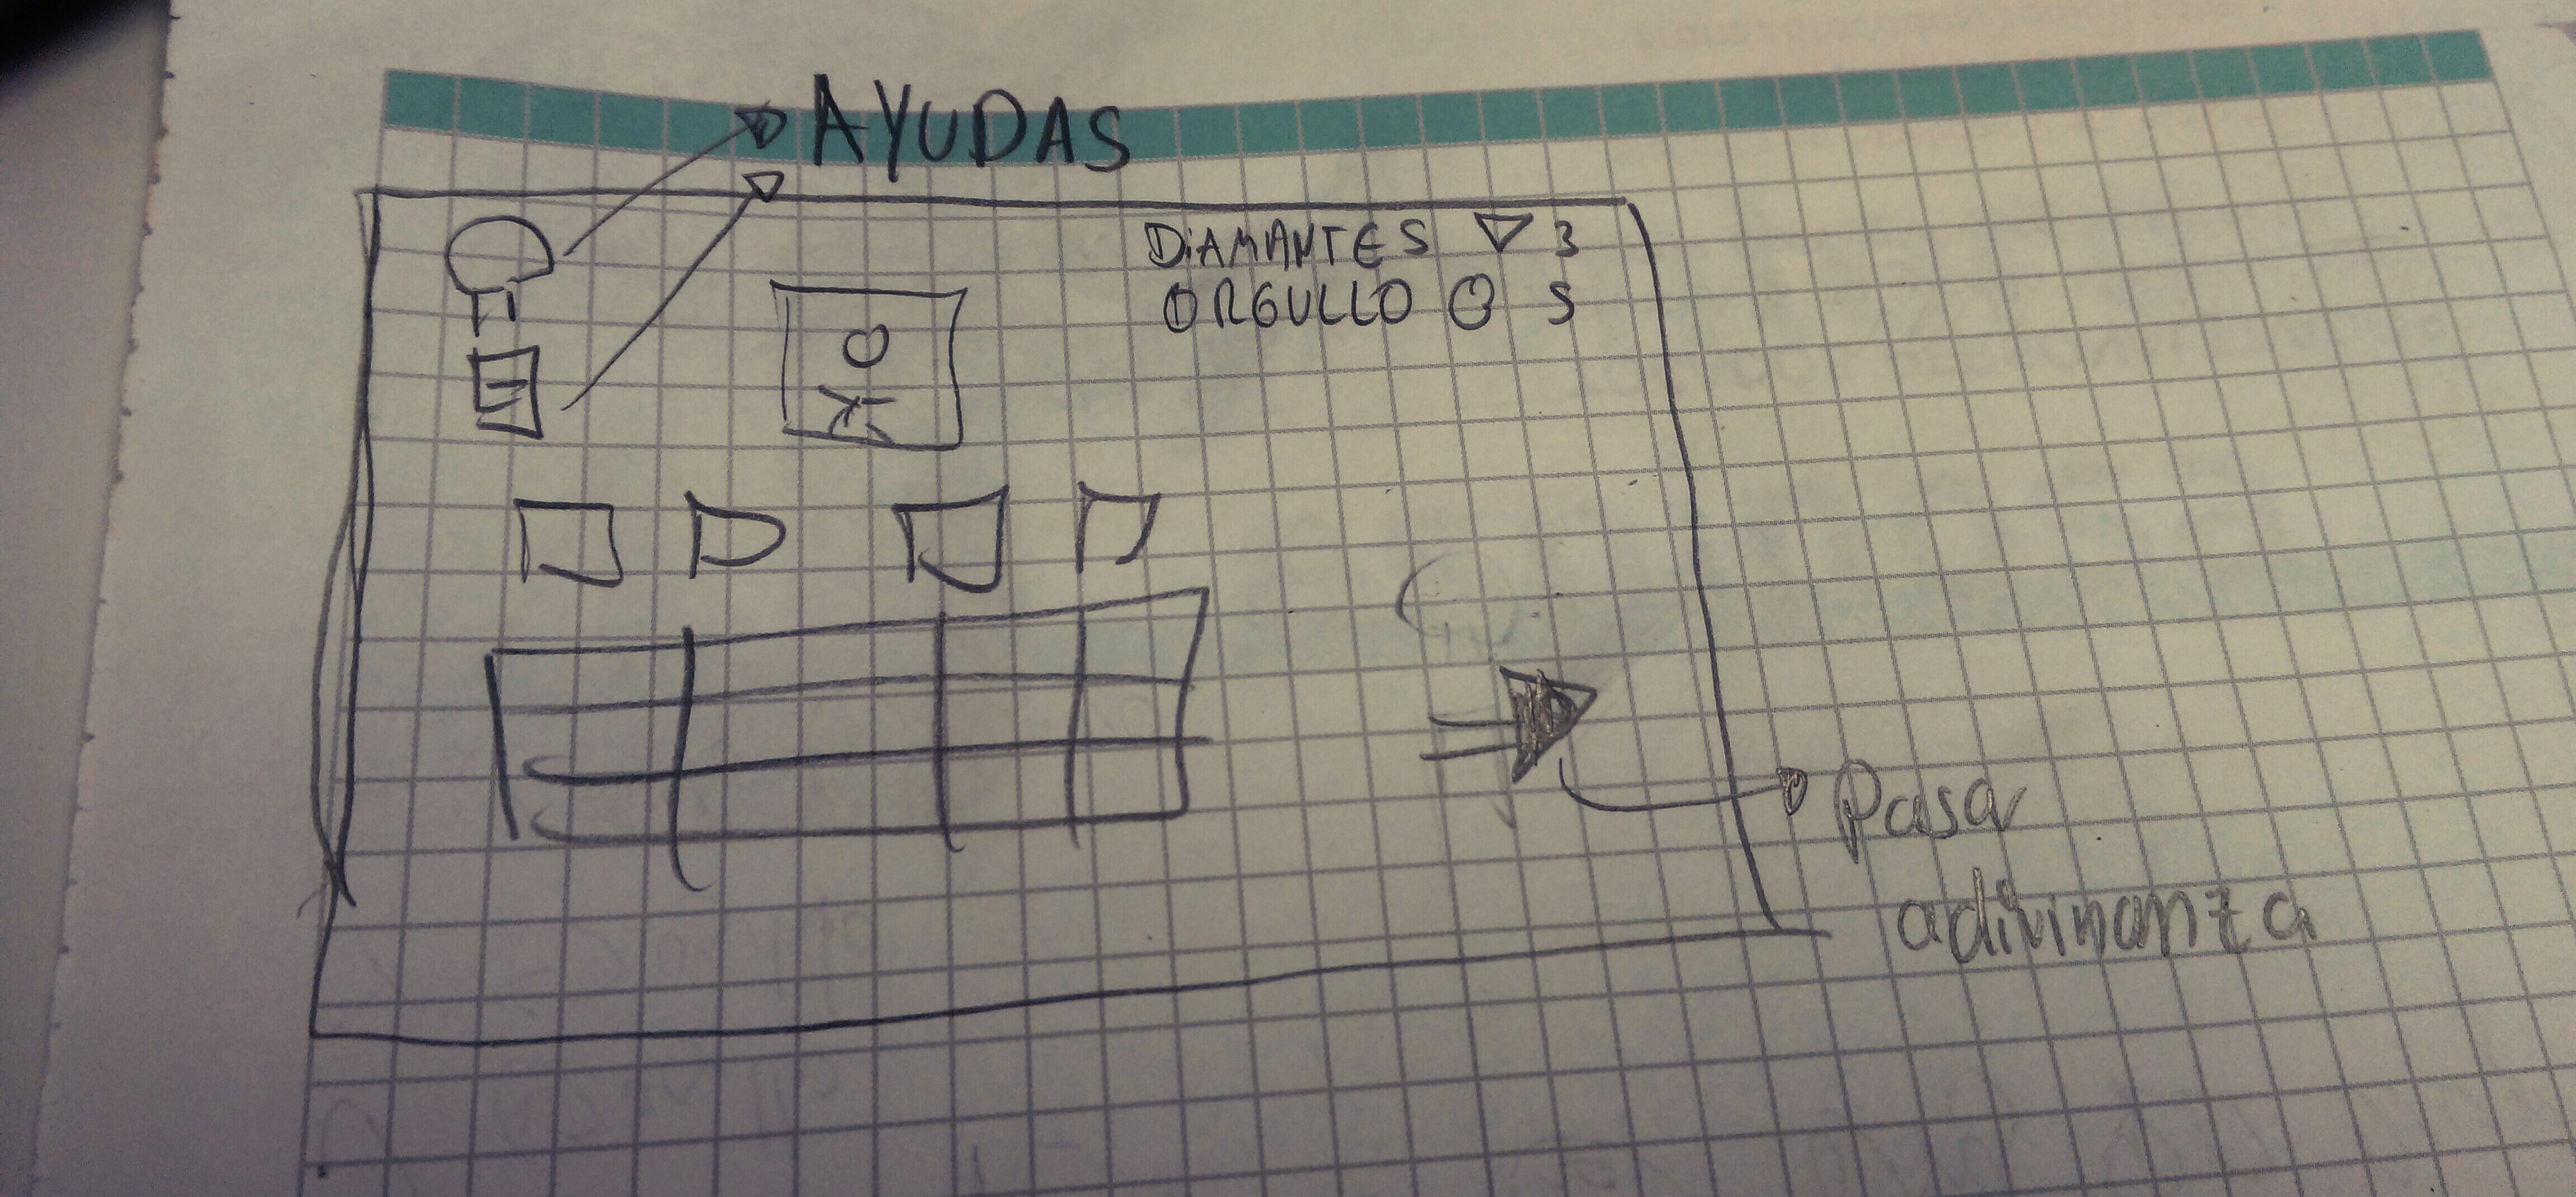 AYUDAS
DiAMANTES 3
ORGULLO 5
Pasa
adivinanza